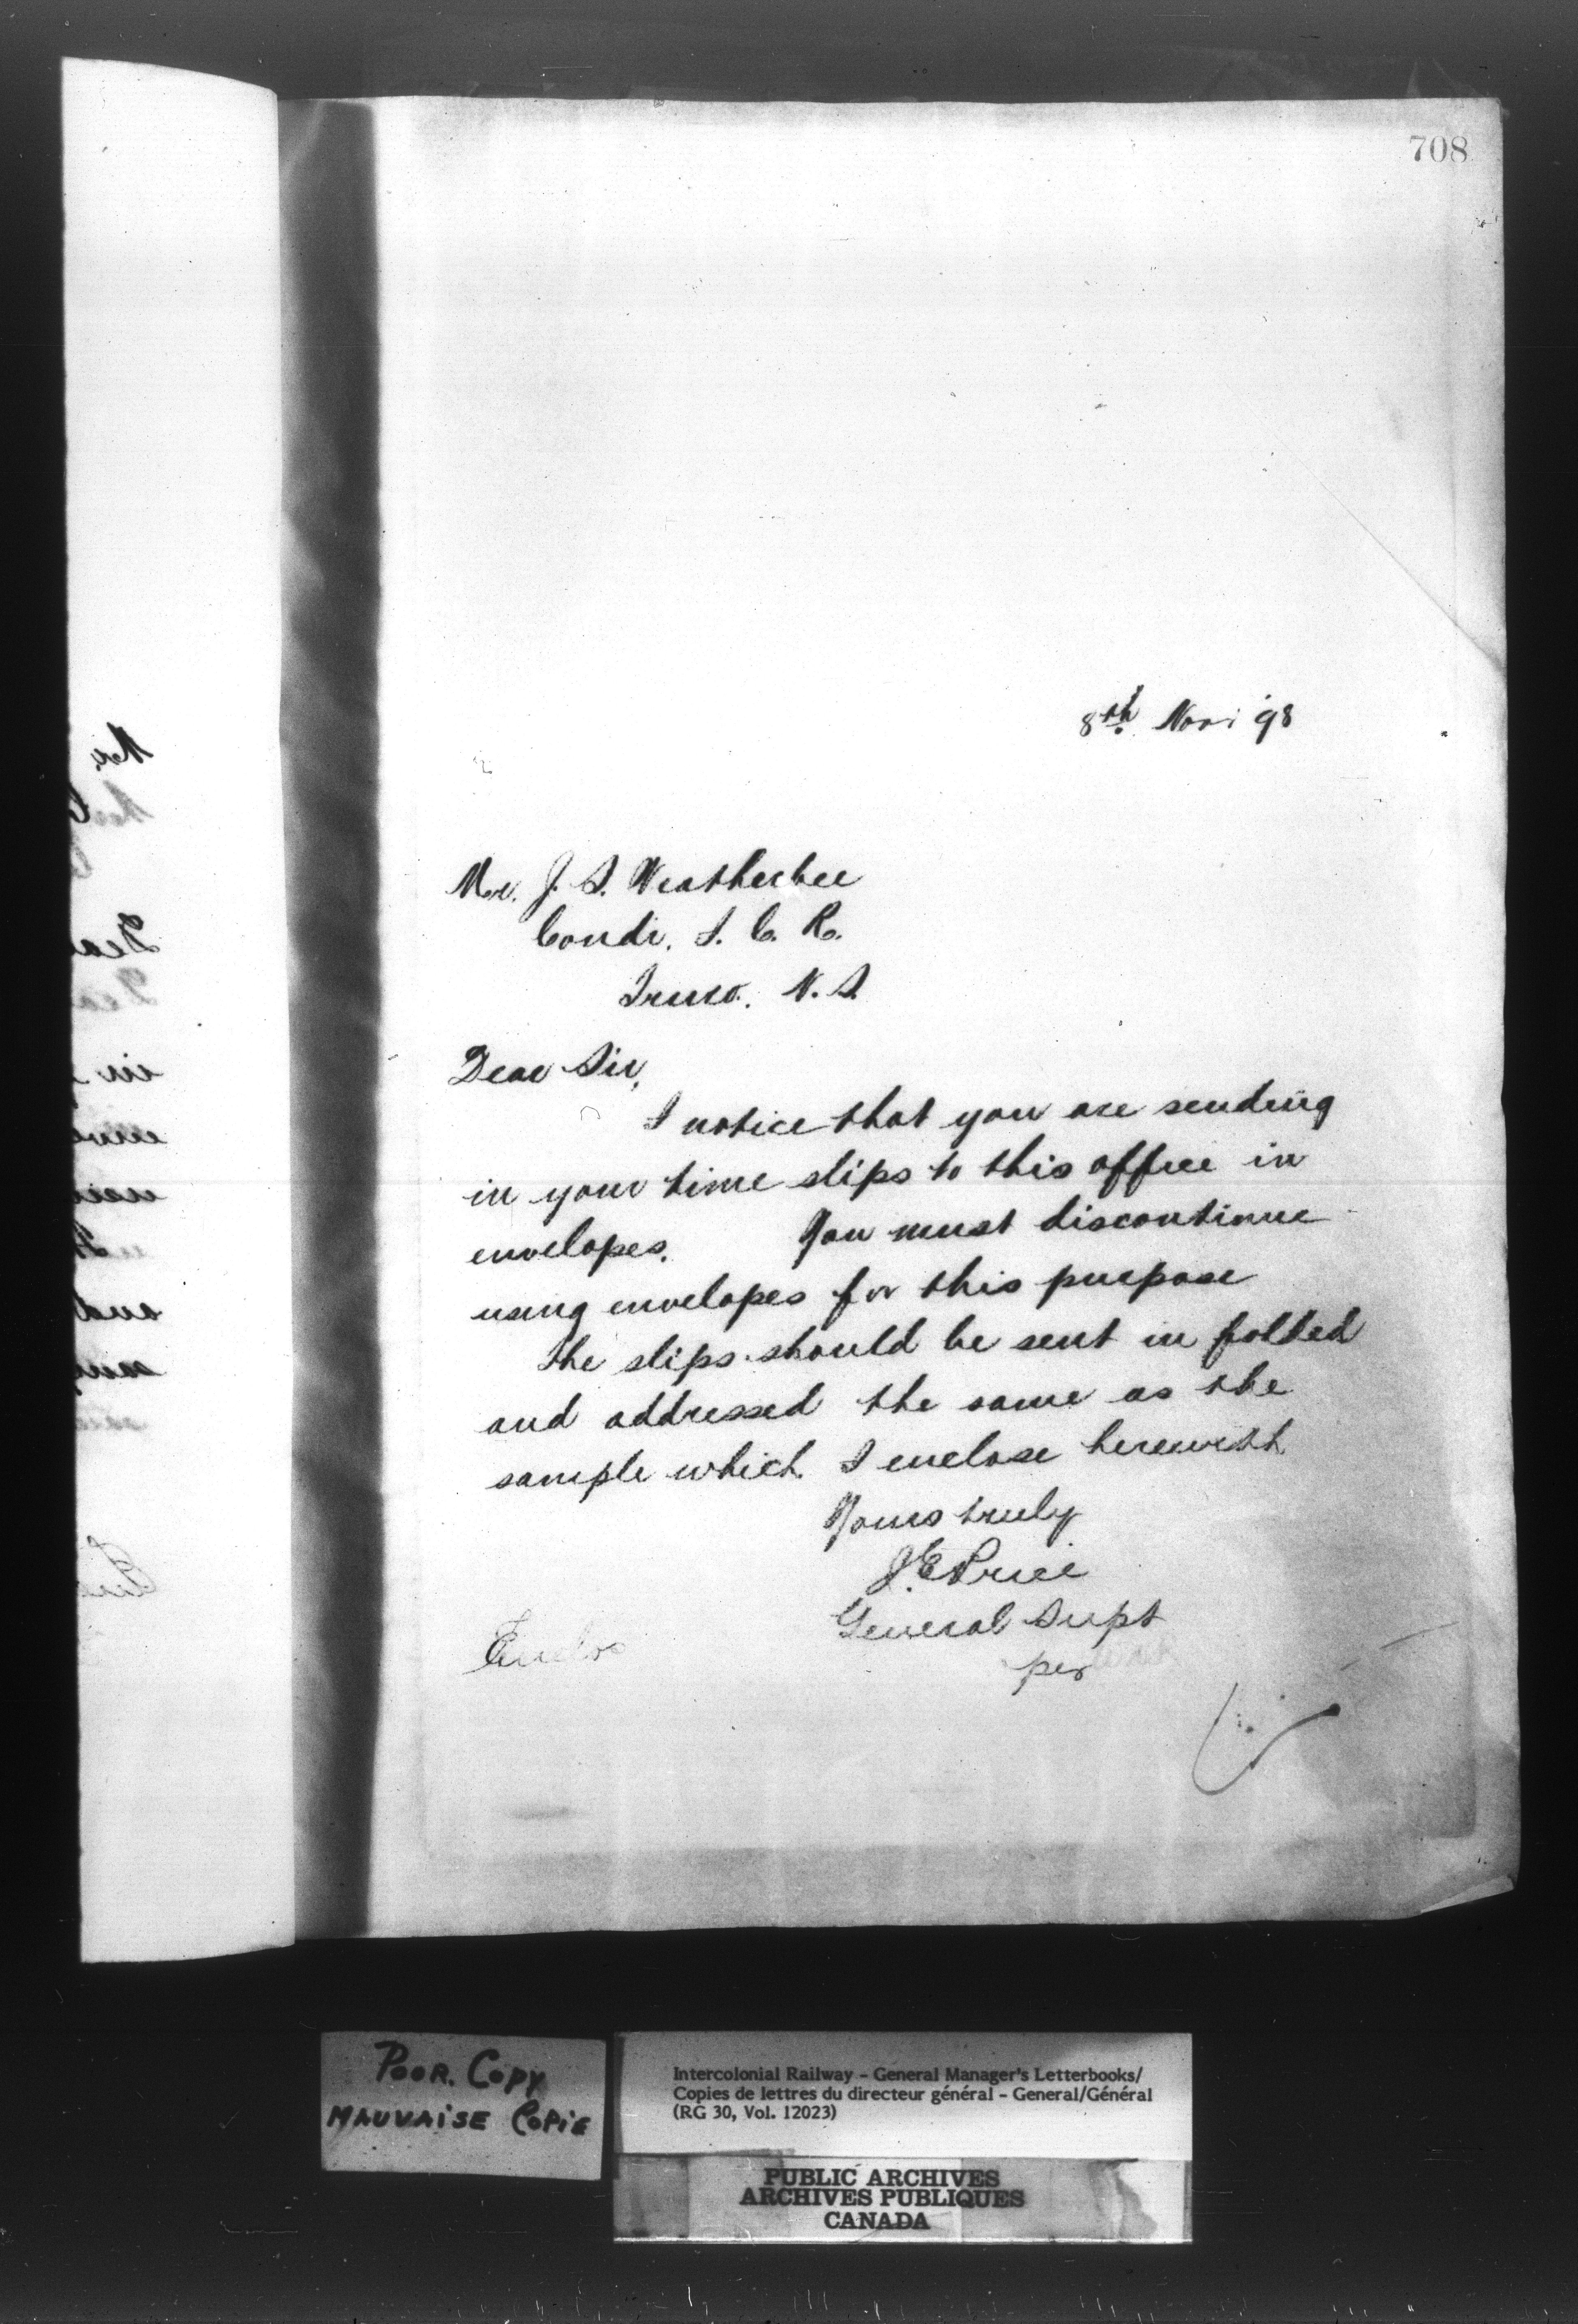 708
8th. Nov. '98
Mr. J. S. Weatherbee
Condr. I. C. R.
Truro. N. S.
Dear Sir,
I notice that you are sending
in your time slips to this office in
envelopes. You must discontinue
using envelopes for this purpose
The slips should be sent in folded
and addressed the same as the
sample which I enclose herewith
Yours truly
J.E. Price
General Supt
Enclos
per
POOR. COPY
MAUVAISE COPIE
Intercolonial Railway – General Manager's Letterbooks/
Copies de lettres du directeur général – General/Général
(RG 30, Vol. 12023)
PUBLIC ARCHIVES
ARCHIVES PUBLIQUES
CANADA